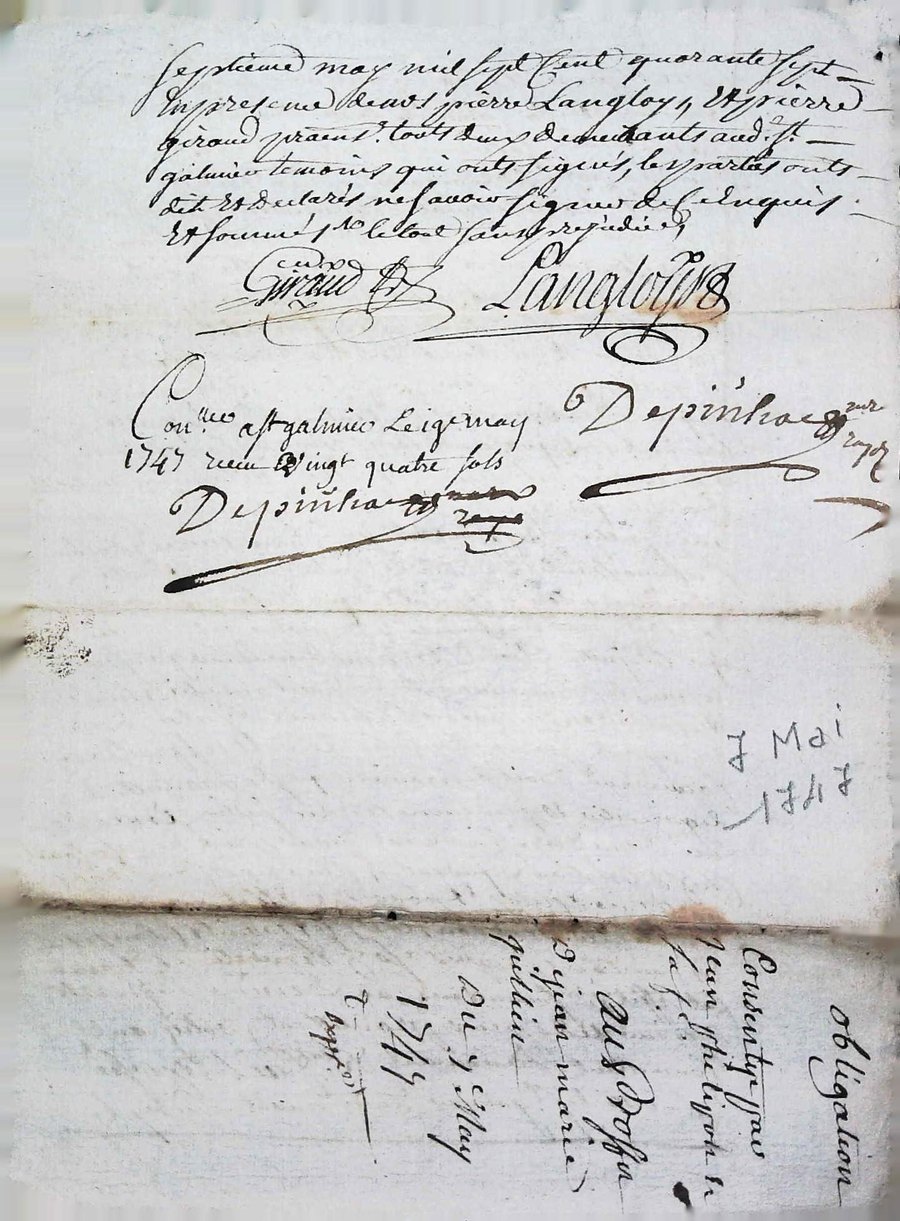 Septieme may mil sept Cent quarante sept
En presence de pierre Langloys, Et pierre
giraud praens. touts deux demeurants aud. St.
galmier temoins qui onts signés, les parties onts
dit Et declarés ne scavoir signer de ce Enquis
Et sommés le tout sans prejudice,
Giraud Langloys
Depinhac
Con.lle a St galmier Le ige may
1747 receu vingt quatre sols
Depinhac
7 Mai
1747
obligation
Consentye par
Jean
au proffit
De jean marie
Du 7e May
1747